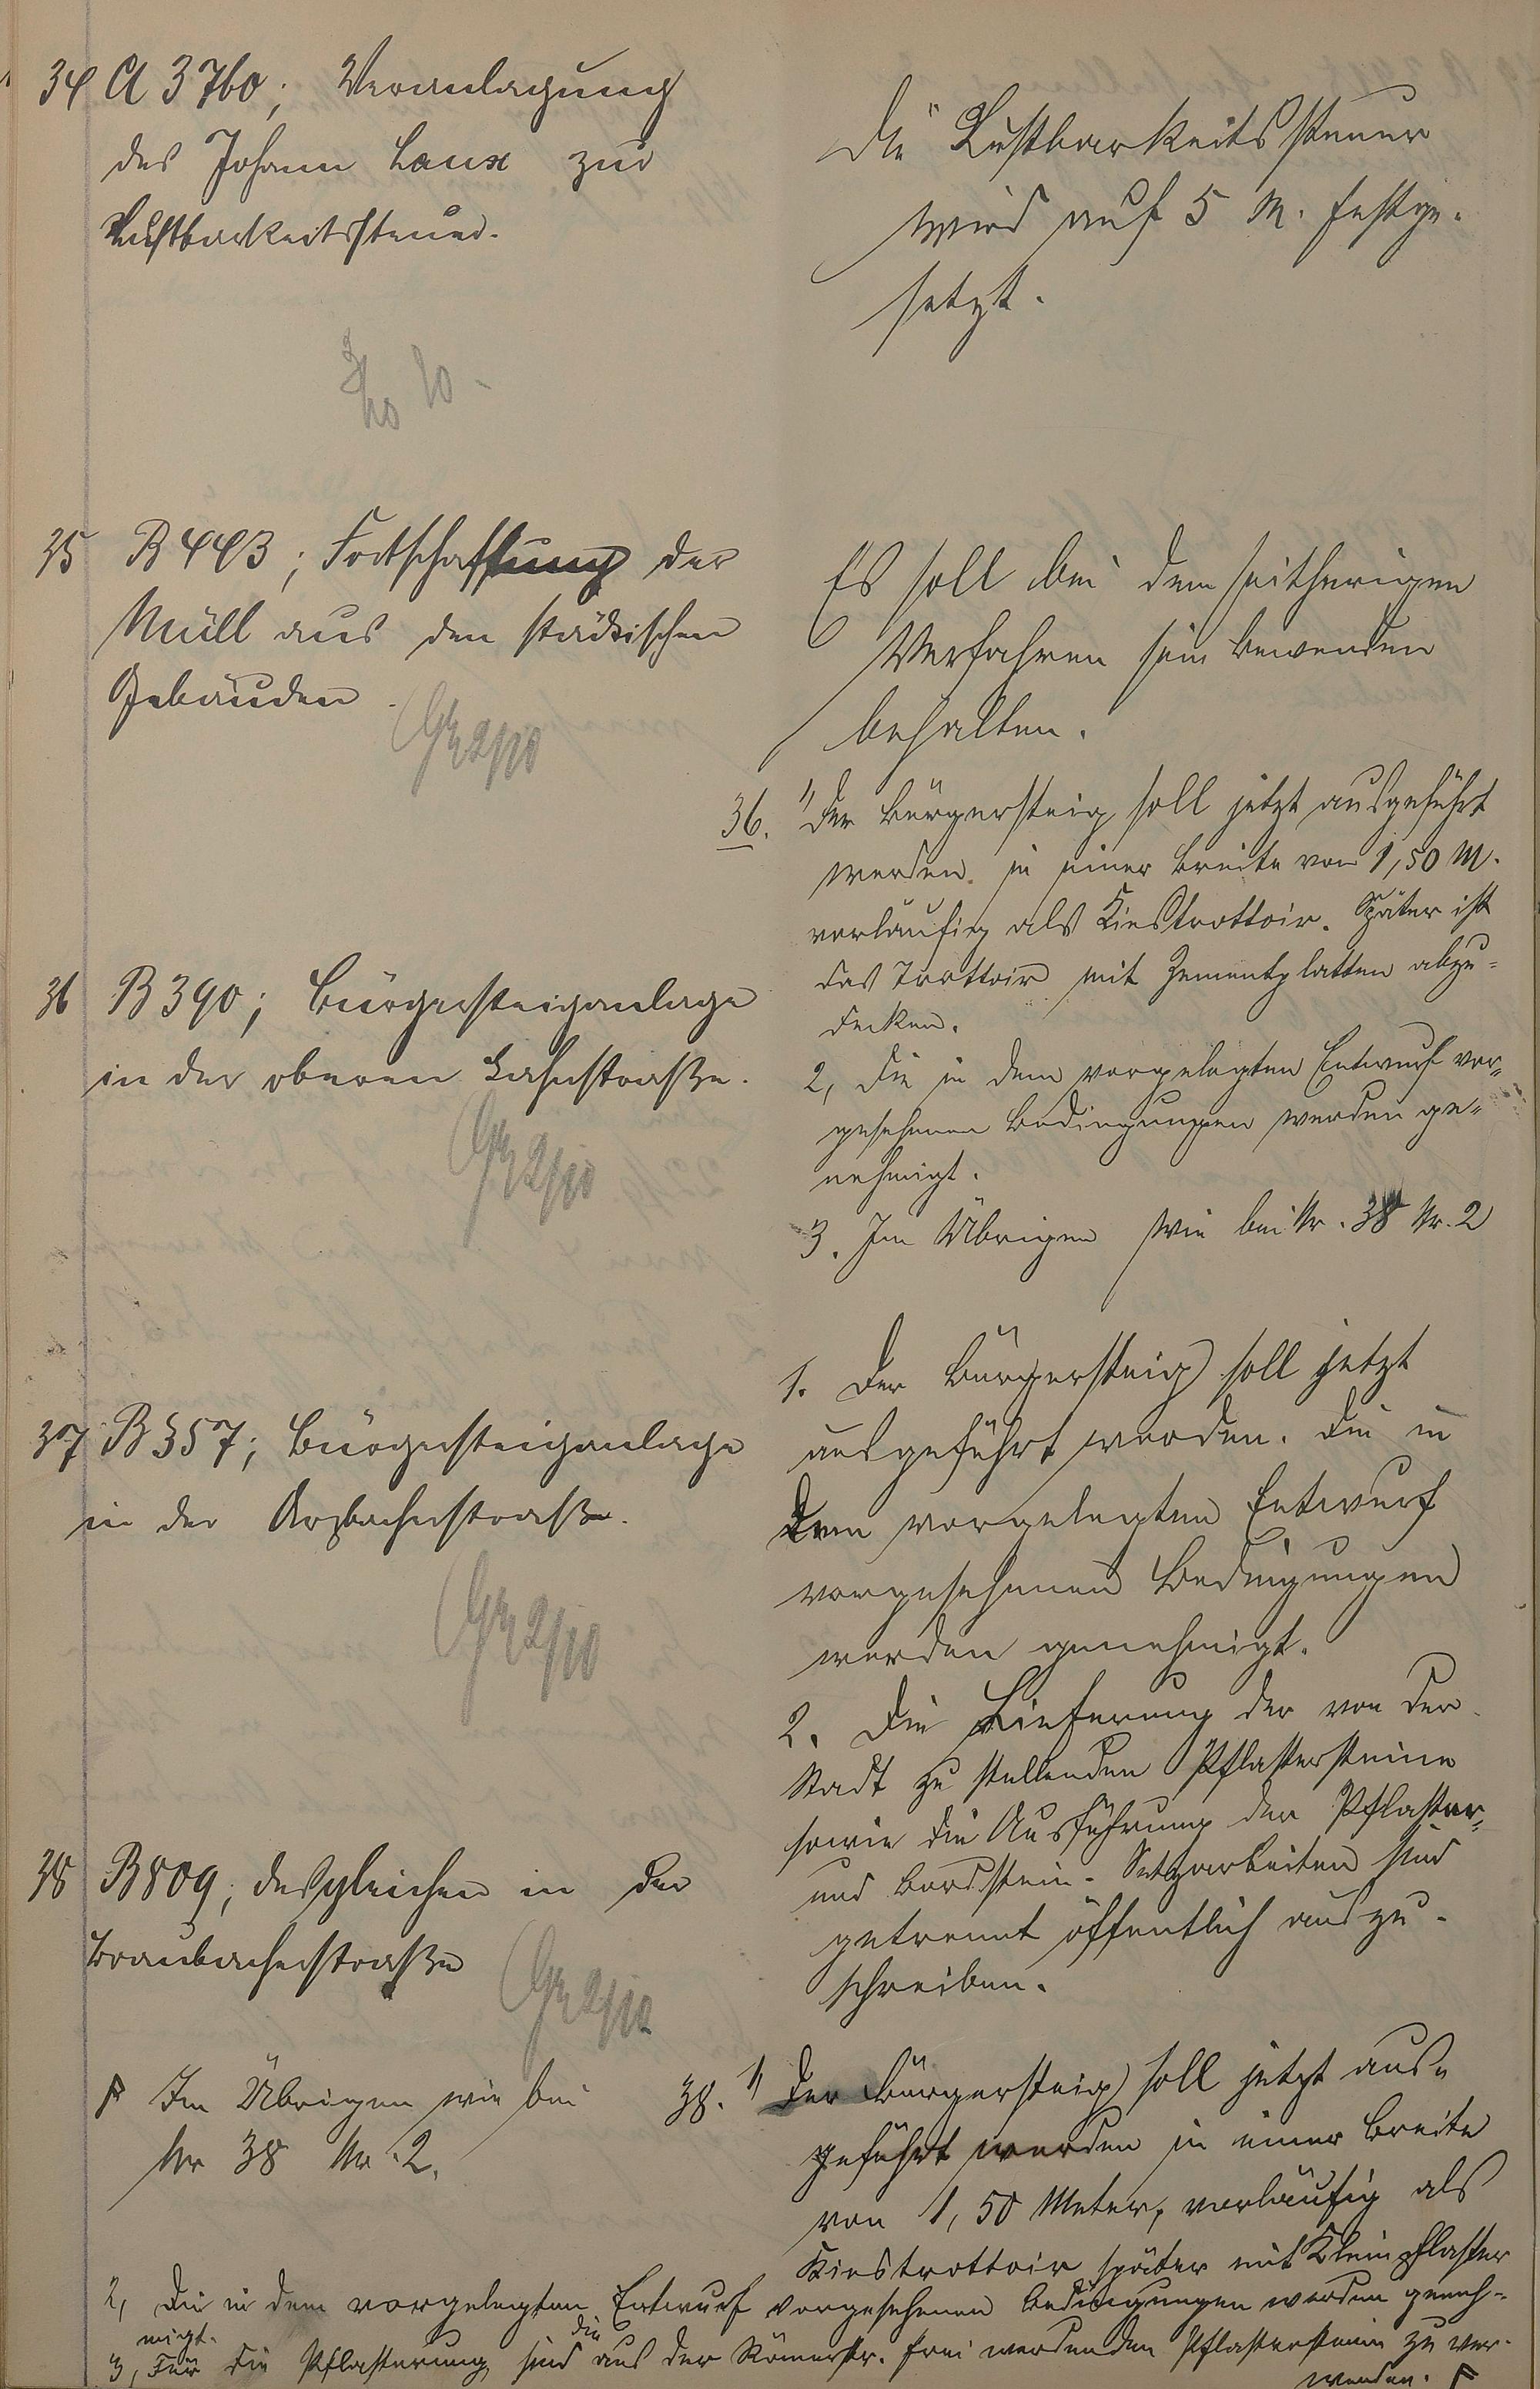 34 A 3760; Veranlagung
des Johann Laux zur
Lustbarkeitssteuer.
Die Lustbarkeitssteuer
wird auf 5 M. festge-
setzt.
35 B 443; Fortschaffung der
Müll aus den städtischen
Gebäuden.
2/10
Es soll bei dem seitherigen
Verfahren sein bewenden
behalten.
36 B 390; Bürgersteiganlage
in der oberen Lahnstraße.
2/10
36. 1, Der Bürgersteig soll jetzt ausgeführt
werden in einer Breite von 1,50 M.
vorläufig als Kiestrottoir. Später ist
das Trottoir mit Zementplatten abzu-
decken.
2, Die in dem vorgelegten Entwurf vor-
gesehenen Bedingungen werden ge-
nehmigt.
3. Im Übrigen wie bei Nr. 38 Nr. 2
37 B 357; Bürgersteiganlage
in der Arzbacherstraße.
2/10
1. Der Bürgersteig soll jetzt
ausgeführt werden. Die in
dem vorgelegten Entwurf
vorgesehenen Bedingungen
werden genehmigt.
2. Die Lieferung der von der
Stadt zu stellenden Pflastersteine
sowie die Ausführung der Pflaster-
und Bordstein-Setzarbeiten sind
getrennt öffentlich auszu-
schreiben.
38 B 809; desgleichen in der
Braubacherstraße
2/10
38. 1, Der Bürgersteig soll jetzt aus-
geführt werden in einer Breite
von 1,50 Meter, vorläufig als
Kiestrottoir später mit Kleinpflaster
2, Die in dem vorgelegten Entwurf vorgesehenen Bedingungen werden geneh-
migt.
3, Für die Pflasterung sind die aus der Römerstr. frei werdenden Pflastersteine zu ver-
wenden. F
F Im Übrigen wie bei
Nr 38 Nr. 2.